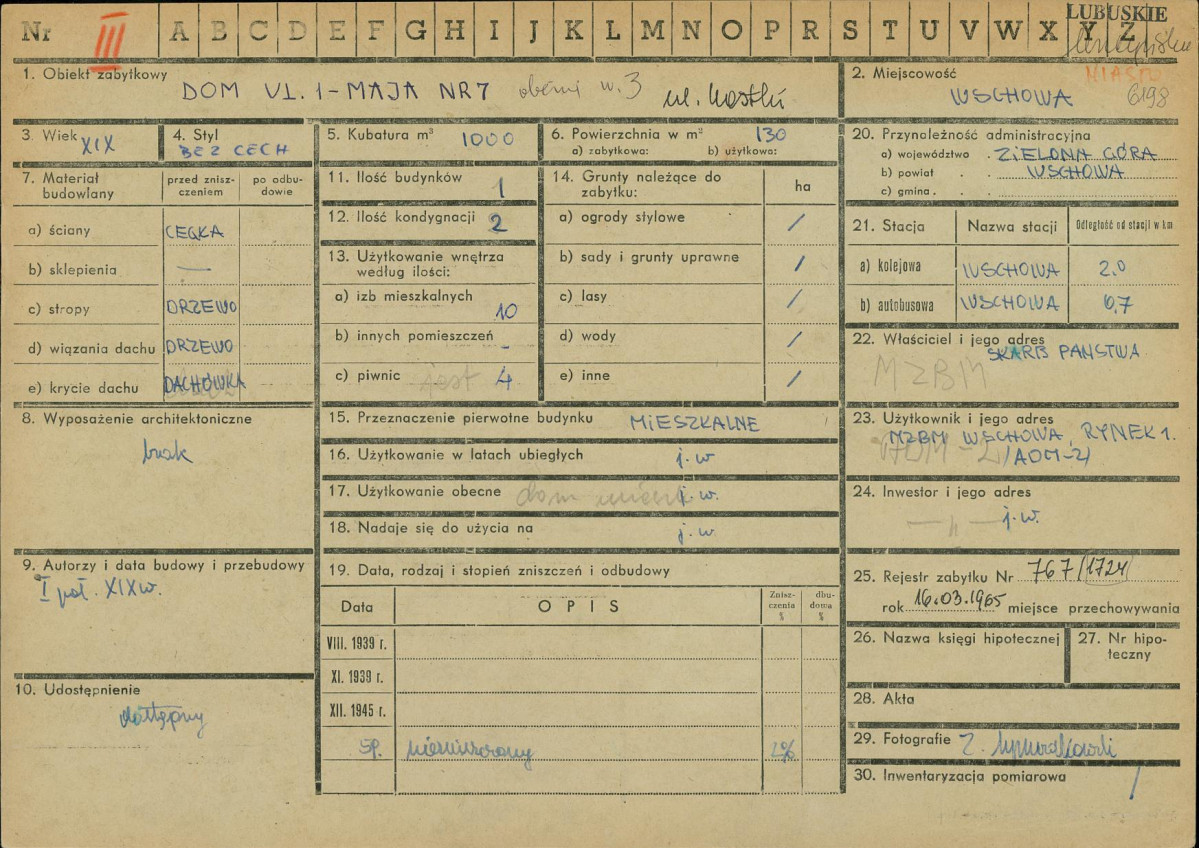 Nr III A B C D E F G H I J K L M N O P R S T U V W X Y Z
LUBUSKIE
1. Obiekt zabytkowy
DOM UL. 1-MAJA NR 7 w. 3 ul. Kostki
2. Miejscowość
MIASTO
WSCHOWA 6198
3. Wiek XIX
4. Styl
BEZ CECH
5. Kubatura m³ 1000
6. Powierzchnia w m² 130
a) zabytkowa: b) użytkowa:
20. Przynależność administracyjna
a) województwo . ZIELONA GÓRA
b) powiat . . WSCHOWA
c) gmina . . .
7. Materiał budowlany
przed zniszczeniem
po odbudowie
a) ściany CEGŁA
b) sklepienia —
c) stropy DRZEWO
d) wiązania dachu DRZEWO
e) krycie dachu DACHÓWKA
11. Ilość budynków 1
12. Ilość kondygnacji 2
13. Użytkowanie wnętrza
według ilości:
a) izb mieszkalnych 10
b) innych pomieszczeń -
c) piwnic jest 4
14. Grunty należące do
zabytku:
ha
a) ogrody stylowe /
b) sady i grunty uprawne /
c) lasy /
d) wody /
e) inne /
21. Stacja Nazwa stacji Odległość od stacji w km
a) kolejowa WSCHOWA 2,0
b) autobusowa WSCHOWA 0,7
22. Właściciel i jego adres
SKARB PAŃSTWA
MZBM
8. Wyposażenie architektoniczne
brak
15. Przeznaczenie pierwotne budynku MIESZKALNE
16. Użytkowanie w latach ubiegłych j. w
17. Użytkowanie obecne dom j. w.
18. Nadaje się do użycia na j. w.
23. Użytkownik i jego adres
MZBM WSCHOWA, RYNEK 1.
/ADM-2/
24. Inwestor i jego adres
— „ — j. w.
9. Autorzy i data budowy i przebudowy
I poł. XIX w.
19. Data, rodzaj i stopień zniszczeń i odbudowy
Data OPIS Zniszczenia % dbudowa %
VIII. 1939 r.
XI. 1939 r.
XII. 1945 r.
2%
25. Rejestr zabytku Nr 767/1724
rok 16.03.1965 miejsce przechowywania
26. Nazwa księgi hipotecznej
27. Nr hipoteczny
10. Udostępnienie
dostępny
28. Akta
29. Fotografie
30. Inwentaryzacja pomiarowa /